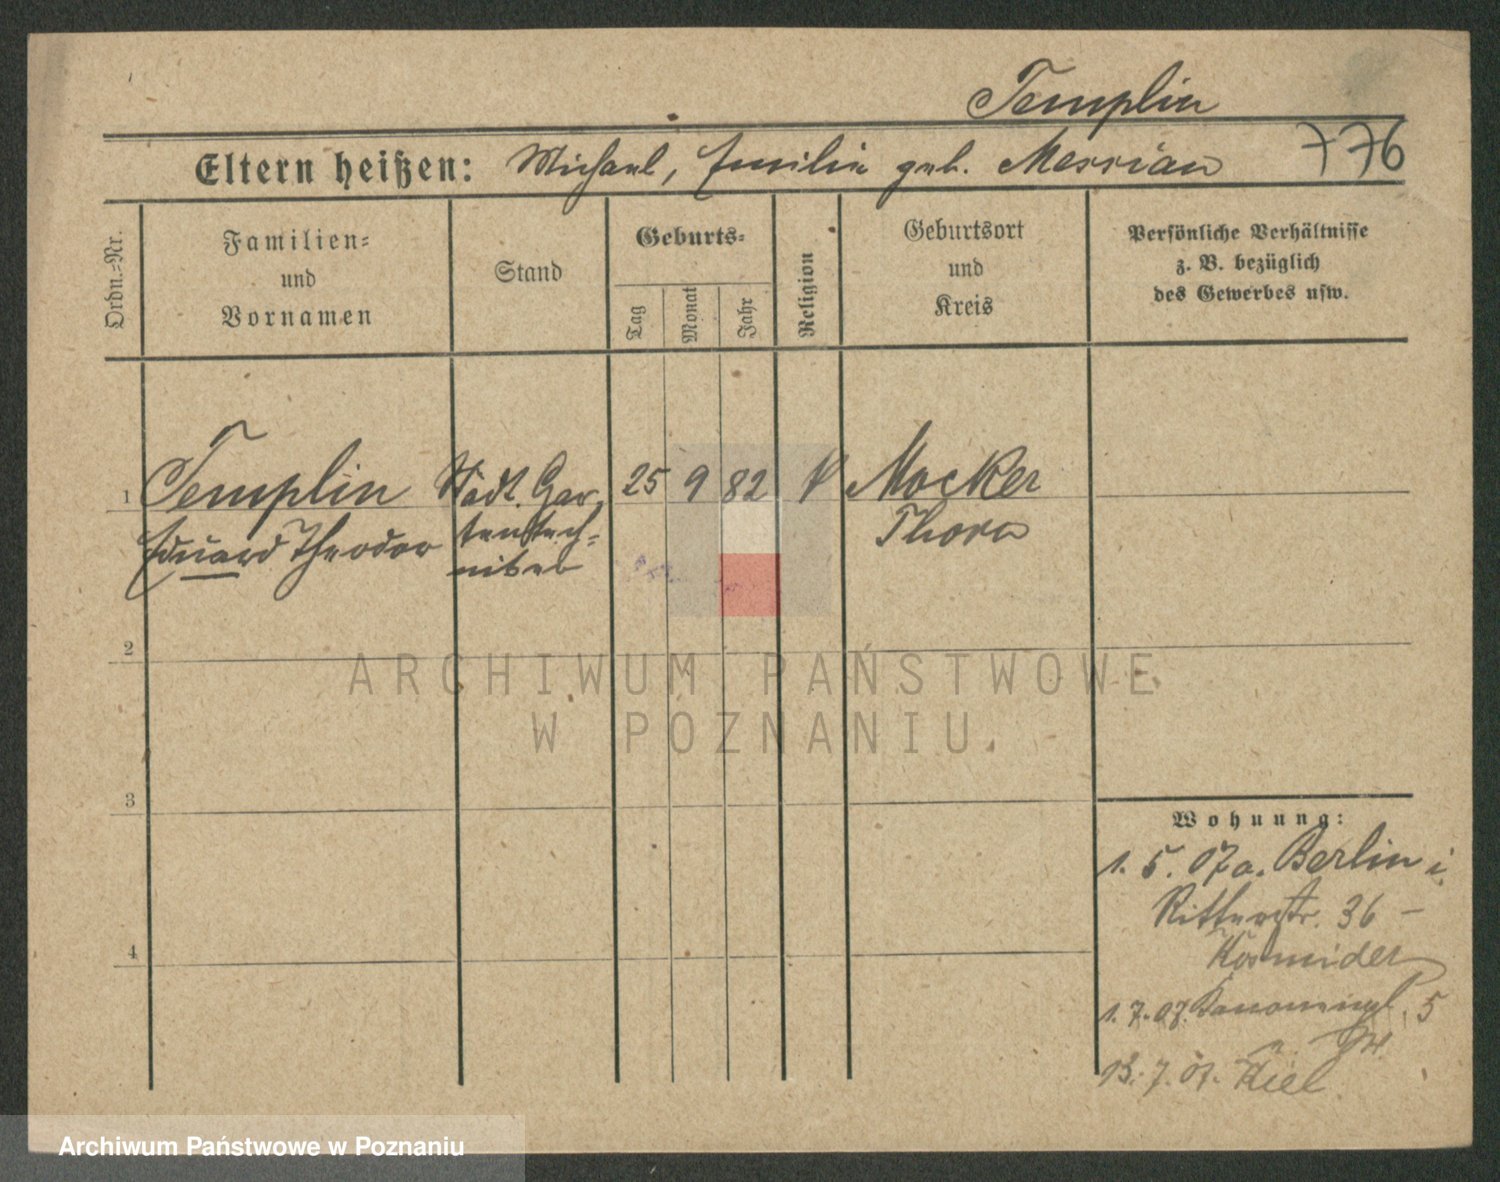 Templin
776
Eltern heißen: Michael, Emilie geb. Messian
Ordn.=Nr.
Familien=
und
Vornamen
Stand
Geburts=
Tag
Monat
Jahr
Religion
Geburtsort
und
Kreis
Persönliche Verhältnisse
z. B. bezüglich
des Gewerbes usw.
1
Templin
Eduard Theodor
Städt. Gar
tentech=
niker
25
9
82
Mocker
Thorn
2
3
4
Wohnung:
1. 5. 07 a. Berlin i.
Ritterstr. 36 –
1. 7. 07. 5
13. 7. 07. n. Kiel
ARCHIWUM PAŃSTWOWE
W POZNANIU.
Archiwum Państwowe w Poznaniu